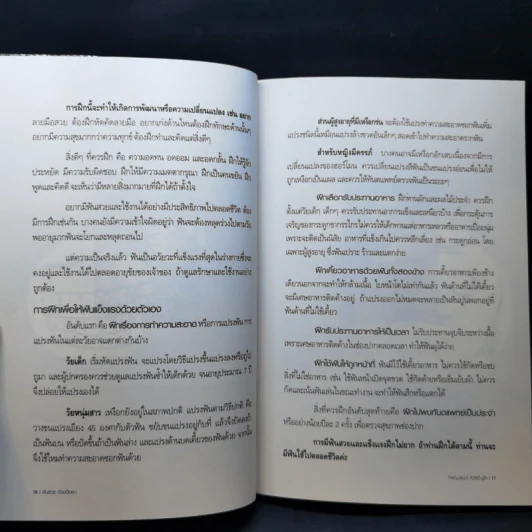 การฝึกนี้จะทำให้เกิดการพัฒนาหรือความเปลี่ยนแปลง เช่น อยาก
ลายมือสวย ต้องฝึกหัดคัดลายมือ อยากเก่งด้านไหนต้องฝึกทักษะด้านนั้นๆ
อยากมีความสุขมากกว่าความทุกข์ ต้องฝึกทำและคิดแต่สิ่งดีๆ
สิ่งดีๆ ที่ควรฝึก คือ ความอดทน อดออม และอดกลั้น ฝึกให้รู้จัก
ประหยัด มีความรับผิดชอบ ฝึกให้มีความเมตตากรุณา ฝึกเป็นคนขยัน ฝึก
พูดและคิดดี จะเห็นว่ามีหลายสิ่งมากมายที่ฝึกได้ถ้าตั้งใจ
อยากมีฟันสวยและใช้งานได้อย่างมีประสิทธิภาพไปตลอดชีวิต ต้อง
มีการฝึกเช่นกัน บางคนยังมีความเข้าใจผิดอยู่ว่า ฟันจะต้องหลุดร่วงไปตามวัย
พออายุมากฟันจะโยกและหลุดถอนไป
แต่ความเป็นจริงแล้ว ฟันเป็นอวัยวะที่แข็งแรงที่สุดในร่างกายซึ่งจะ
คงอยู่และใช้งานได้ไปตลอดอายุขัยของเจ้าของ ถ้าดูแลรักษาและใช้งานอย่าง
ถูกต้อง
การฝึกเพื่อให้ฟันแข็งแรงด้วยตัวเอง
อันดับแรก คือ ฝึกเรื่องการทำความสะอาด หรือการแปรงฟัน การ
แปรงฟันในแต่ละวัยอาจแตกต่างกันบ้าง
วัยเด็ก เริ่มหัดแปรงฟัน จะแปรงโดยวิธีแปรงขึ้นแปรงลงหรือถูไป
ถูมา และผู้ปกครองควรช่วยดูแลแปรงฟันซ้ำให้เด็กด้วย จนอายุประมาณ 7 ปี
จึงปล่อยให้แปรงเองได้
วัยหนุ่มสาว เหงือกยังอยู่ในสภาพปกติ แปรงฟันตามวิธีปกติ คือ
วางขนแปรงเอียง 45 องศากับตัวฟัน ขยับขนแปรงอยู่กับที่ แล้วจึงปัดลงถ้า
เป็นฟันบน หรือปัดขึ้นถ้าเป็นฟันล่าง และแปรงด้านบดเคี้ยวของฟันด้วย จากนั้น
จึงใช้ไหมทำความสะอาดซอกฟันด้วย
16 |
ส่วนผู้สูงอายุที่มีเหงือกร่น จะต้องใช้แปรงทำความสะอาดซอกฟันเพิ่ม
แปรงชนิดนี้เหมือนแปรงล้างขวดอันเล็กๆ สอดเข้าไปทำความสะอาดรากฟัน
สำหรับหญิงมีครรภ์ บางคนอาจมีเหงือกอักเสบเนื่องจากมีการ
เปลี่ยนแปลงของฮอร์โมน ควรเปลี่ยนแปรงสีฟันเป็นขนแปรงอ่อนเพื่อไม่ให้
ถูกเหงือกเป็นแผล และควรให้ทันตแพทย์ตรวจฟันเป็นระยะๆ
ฝึกเลือกรับประทานอาหาร ฝึกทานผักและผลไม้ประจำ ควรฝึก
ตั้งแต่วัยเด็ก เด็กๆ ควรรับประทานอาหารแข็งและเหนียวบ้าง เพื่อกระตุ้นการ
เจริญของกระดูกขากรรไกร
เพราะจะติดเป็นนิสัย อาหารที่แข็งเกินไปควรหลีกเลี่ยง เช่น กระดูกอ่อน โดย
เฉพาะผู้สูงอายุ ซึ่งฟันเปราะ ร้าวและแตกง่าย
ฝึกเคี้ยวอาหารด้วยฟันทั้งสองข้าง การเคี้ยวอาหารเพียงข้าง
เดียวนอกจากจะทำให้กล้ามเนื้อ ใบหน้าโตไม่เท่ากันแล้ว ฟันด้านที่ไม่ได้เคี้ยว
จะมีเศษอาหารติดค้างอยู่ ถ้าแปรงออกไม่หมดจะกลายเป็นหินปูนพอกอยู่ที่
ฟันด้านที่ไม่ใช้เคี้ยว
ฝึกรับประทานอาหารให้เป็นเวลา ไม่รับประทานจุบจิบระหว่างมื้อ
เพราะเศษอาหารติดค้างในช่องปากตลอดเวลา ทำให้ฟันผุได้ง่าย
ฝึกใช้ฟันให้ถูกหน้าที่ ฟันมีไว้ใช้เคี้ยวอาหาร ไม่ควรใช้กัดหรือขบ
สิ่งที่ไม่ใช่อาหาร เช่น ใช้ฟันหน้าเปิดจุกขวด ใช้กัดด้ายหรือเข็มเย็บผ้า ไม่ควร
กัดและเน้นฟันเล่นในขณะทำงาน จะทำให้ฟันสึกหรือแตกได้
สิ่งที่ควรฝึกอันดับสุดท้ายคือ ฝึกไปพบทันตแพทย์เป็นประจำ
หรืออย่างน้อยปีละ 2 ครั้ง เพื่อตรวจสุขภาพช่องปาก
การมีฟันสวยและแข็งแรงฝึกไม่ยาก ถ้าท่านฝึกได้ตามนี้ ท่านจะ
มีฟันใช้ไปตลอดชีวิตค่ะ
| 17